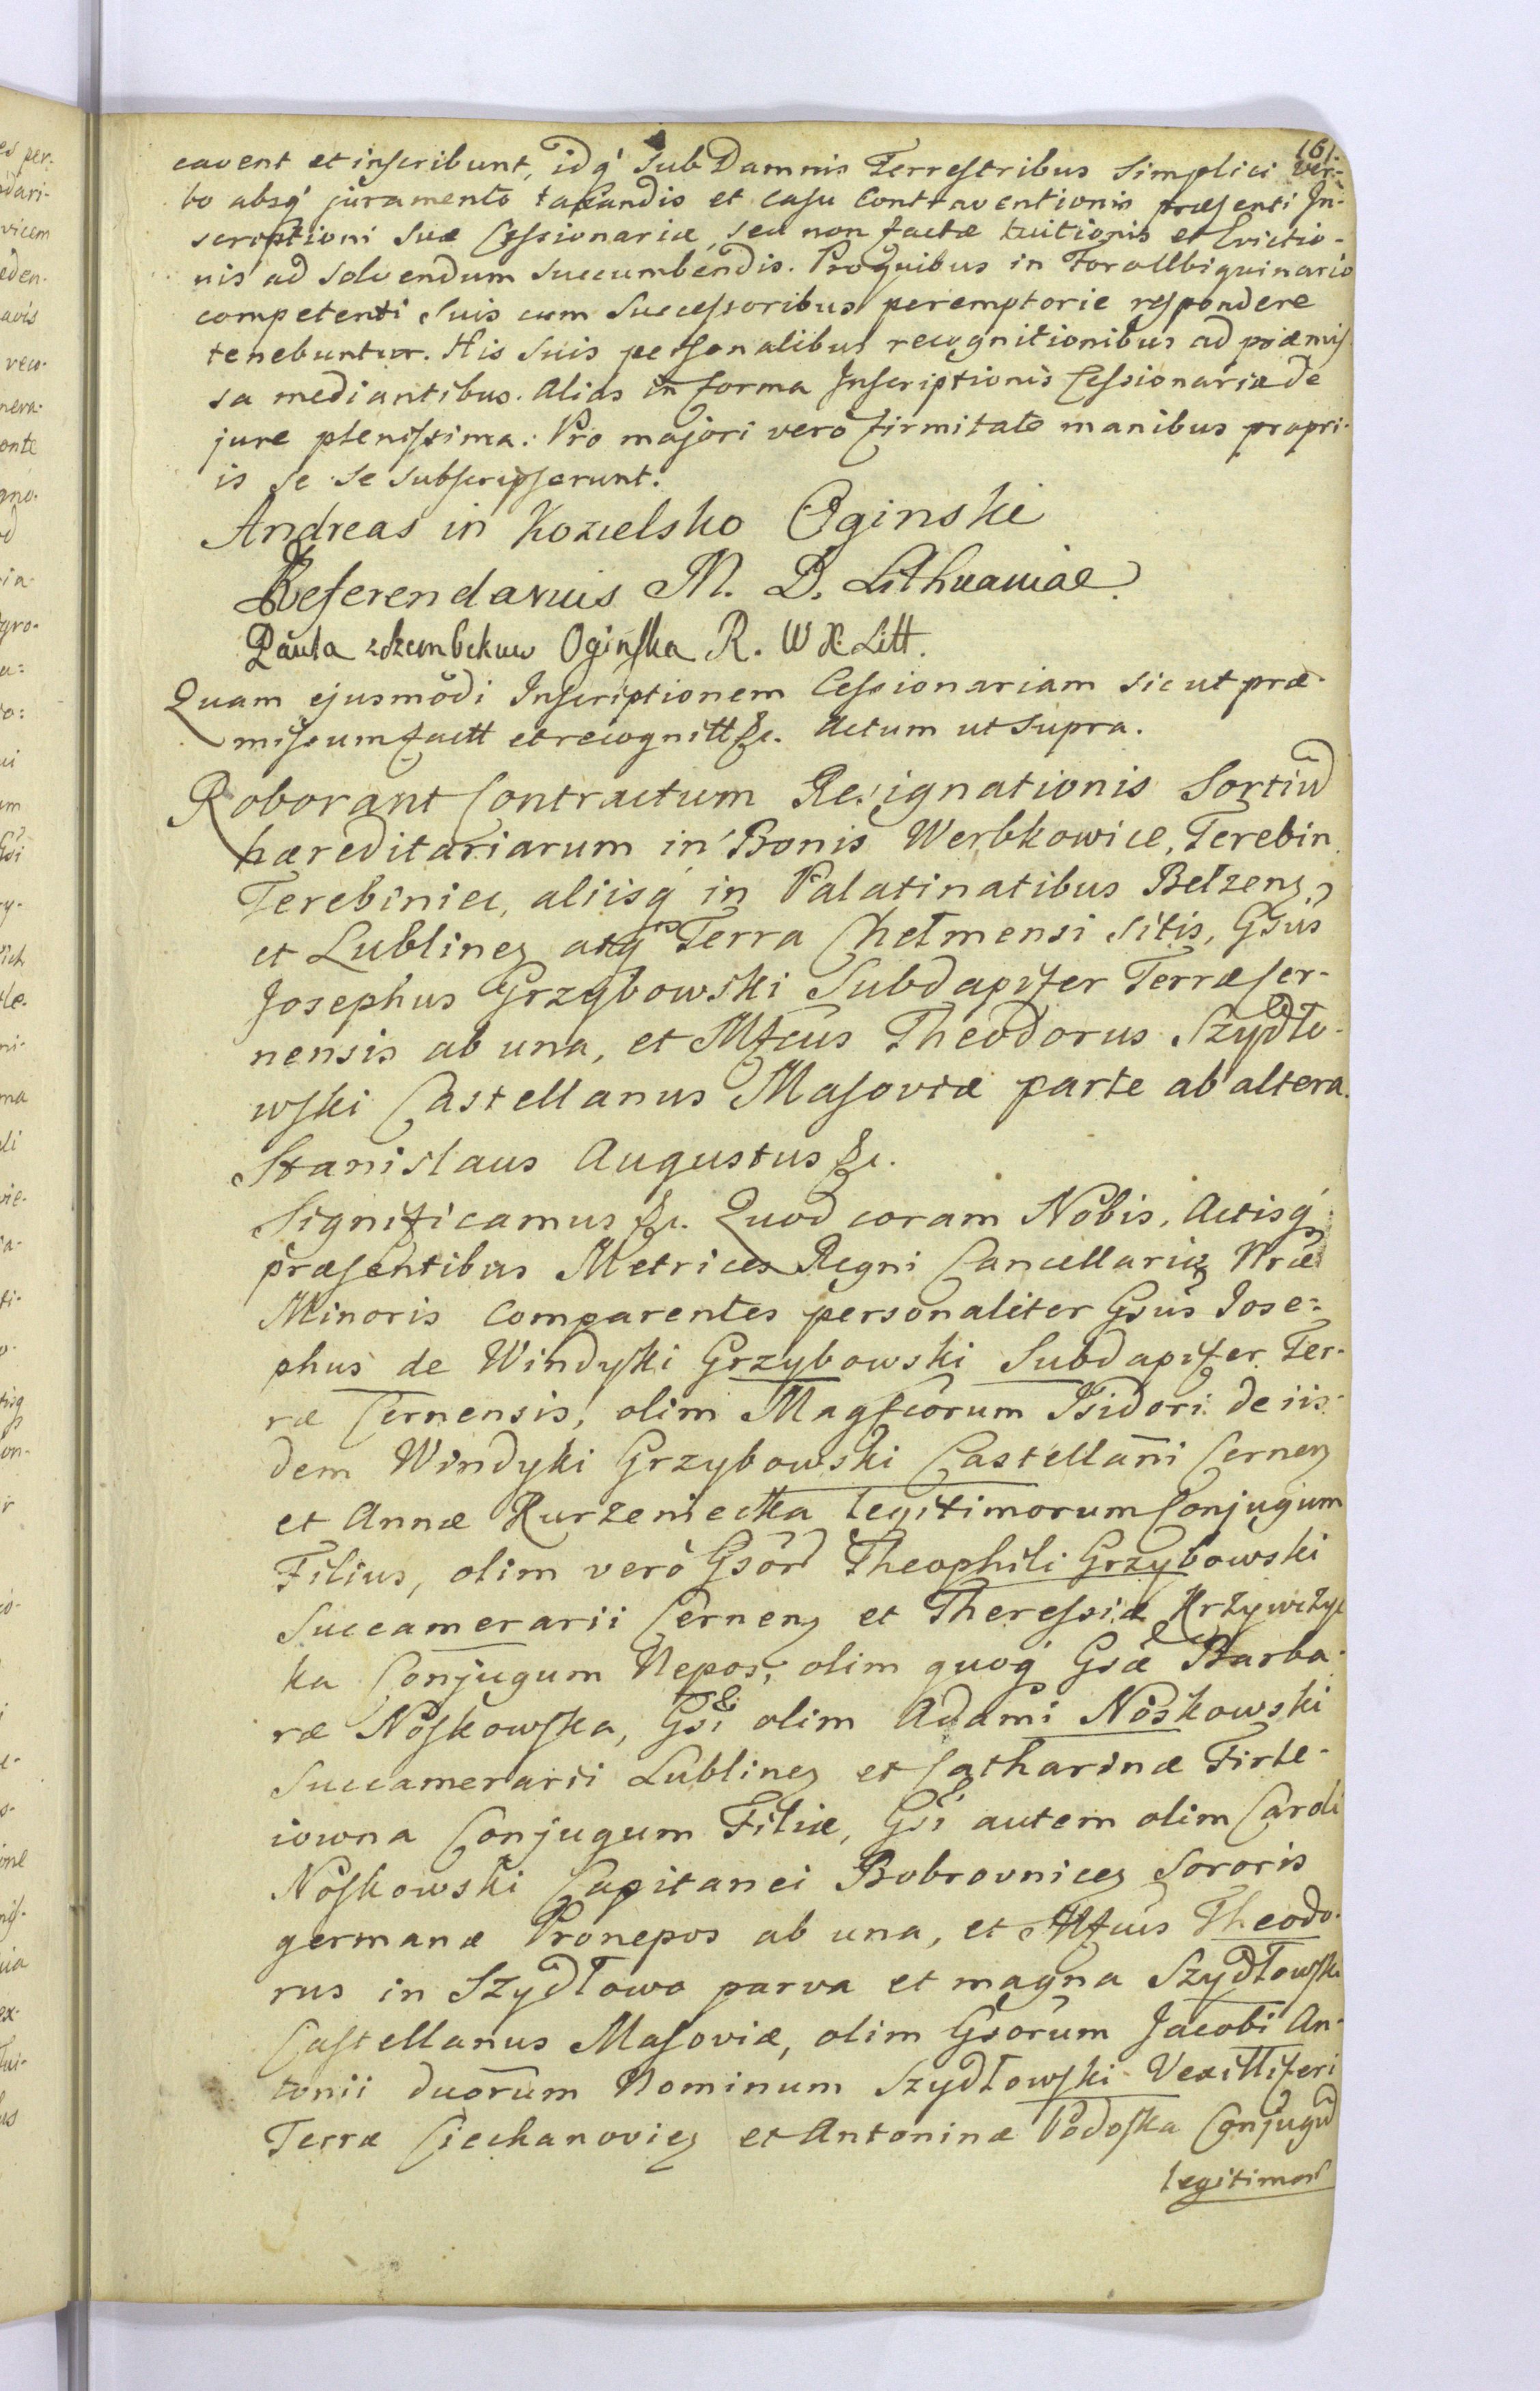 161.
cavent et inscribunt, idq́ sub Damnis Terrestribus simplici ver-
bo absq́ juramento taxandis et casu Contraventionis præsenti In-
scriptioni Suæ Cessionariæ, seu non factæ tuitionis et Evictio-
nis ad solvendum succumbendis. Pro quibus in Foro Ubiquinario
competenti suis cum Successoribus peremptorie respondere
tenebuntur. His suis personalibus recognitionibus ad præmis-
sa mediantibus. Alias in forma Inscriptionis Cessionariæ de
jure plenissima. Pro majori verò firmitate manibus propri-
is se se subscripserunt.
Andreas in Kozielsko Oginski
Referendarius M. D. Lithuaniae
Paula z Szembekuw Oginska R. W X Litt.
Quam ejusmodi Inscriptionem Cessionariam sicut præ-
missum factt et recognitt &c. Actum ut supra.
Roborant Contractum Resignationis Sortiũ
hæreditariarum in Bonis Werbkowice, Terebin,
Terebiniec, aliisq́ in Palatinatibus Bełzenꝫ
et Lublineꝫ atq́ Terra Chełmensi sitis, Gsus
Josephus Grzybowski Subdapifer Terræ Cer-
nensis ab una, et Mfcus Theodorus Szydło-
wski Castellanus Masoviæ parte ab altera.
Stanislaus Augustus &c.
Significamus &c. Quod coram Nobis, Actisq́
præsentibus Metrices Regni Cancellariæ Nræ
Minoris Comparentes personaliter Gsus Jose-
phus de Windyki Grzybowski Subdapifer Ter-
ræ Cernensis, olim Magfcorum Isidori de iis-
dem Windyki Grzybowski Castellani Cerneꝫ
et Annæ Kurzeniecka legitimorum Conjugum
Filius, olim verò Gsor Theophili Grzybowski
Succamerarii Cerneꝫ et Theressiæ Krzywczyc
ka Conjugum Nepos, olim quoq́ Gsæ Barba-
ræ Noskowska, Gsi olim Adami Noskowski
Succamerarii Lublineꝫ et Catharinæ Firle-
iowna Conjugum Filiæ, Gsi autem olim Caroli
Noskowski Capitanei Bobrovniceꝫ Sororis
germanæ Pronepos ab una, et Mfcus Theodo-
rus in Szydłowo parva et magna Szydłowski
Castellanus Masoviæ, olim Gsorum Jacobi An-
tonii duorum Nominum Szydłowski Vexilliferi
Terræ Ciechanovieꝫ et Antoninæ Podoska Conjugũ
legitimor